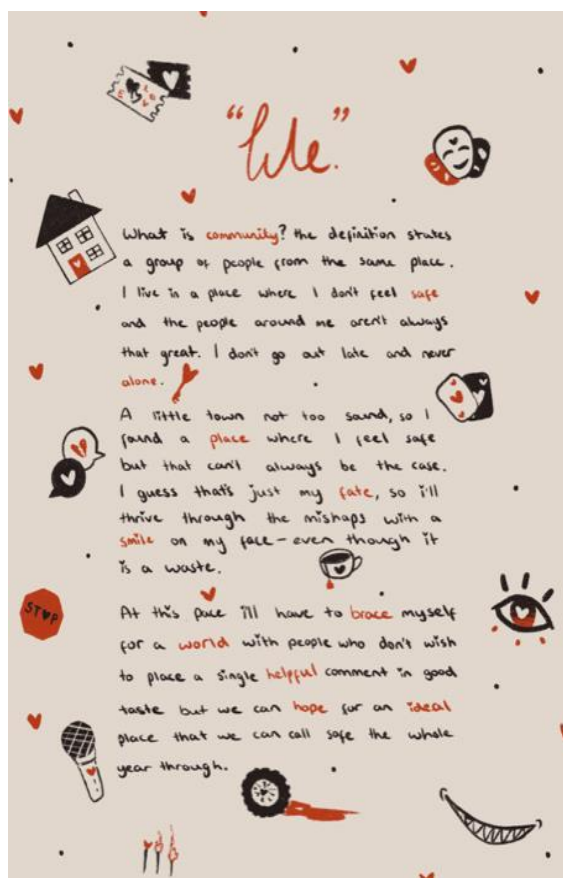 LOVE
"We."
What is community? the definition states
a group of people from the same place.
I live in a place where I don't feel safe
and the people around me aren't always
that great. I don't go out late and never
alone.
A little town not too sound, so I
found a place where I feel safe
but that can't always be the case.
I guess that's just my fate, so i'll
thrive through the mishaps with a
smile on my face - even though it
is a waste.
STOP
At this pace i'll have to brace myself
for a world with people who don't wish
to place a single helpful comment in good
taste but we can hope for an ideal
place that we can call safe the whole
year through.